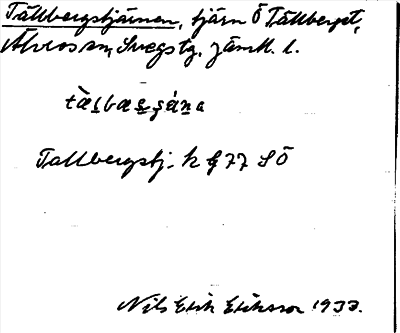 Tällbergstjärnen, tjärn Ö Tällberget,
Älvros sn, Svegs tg. Jämtl. l.
Tallbergstj. k G 77 SÖ
Nils Erik Eriksson 1933.